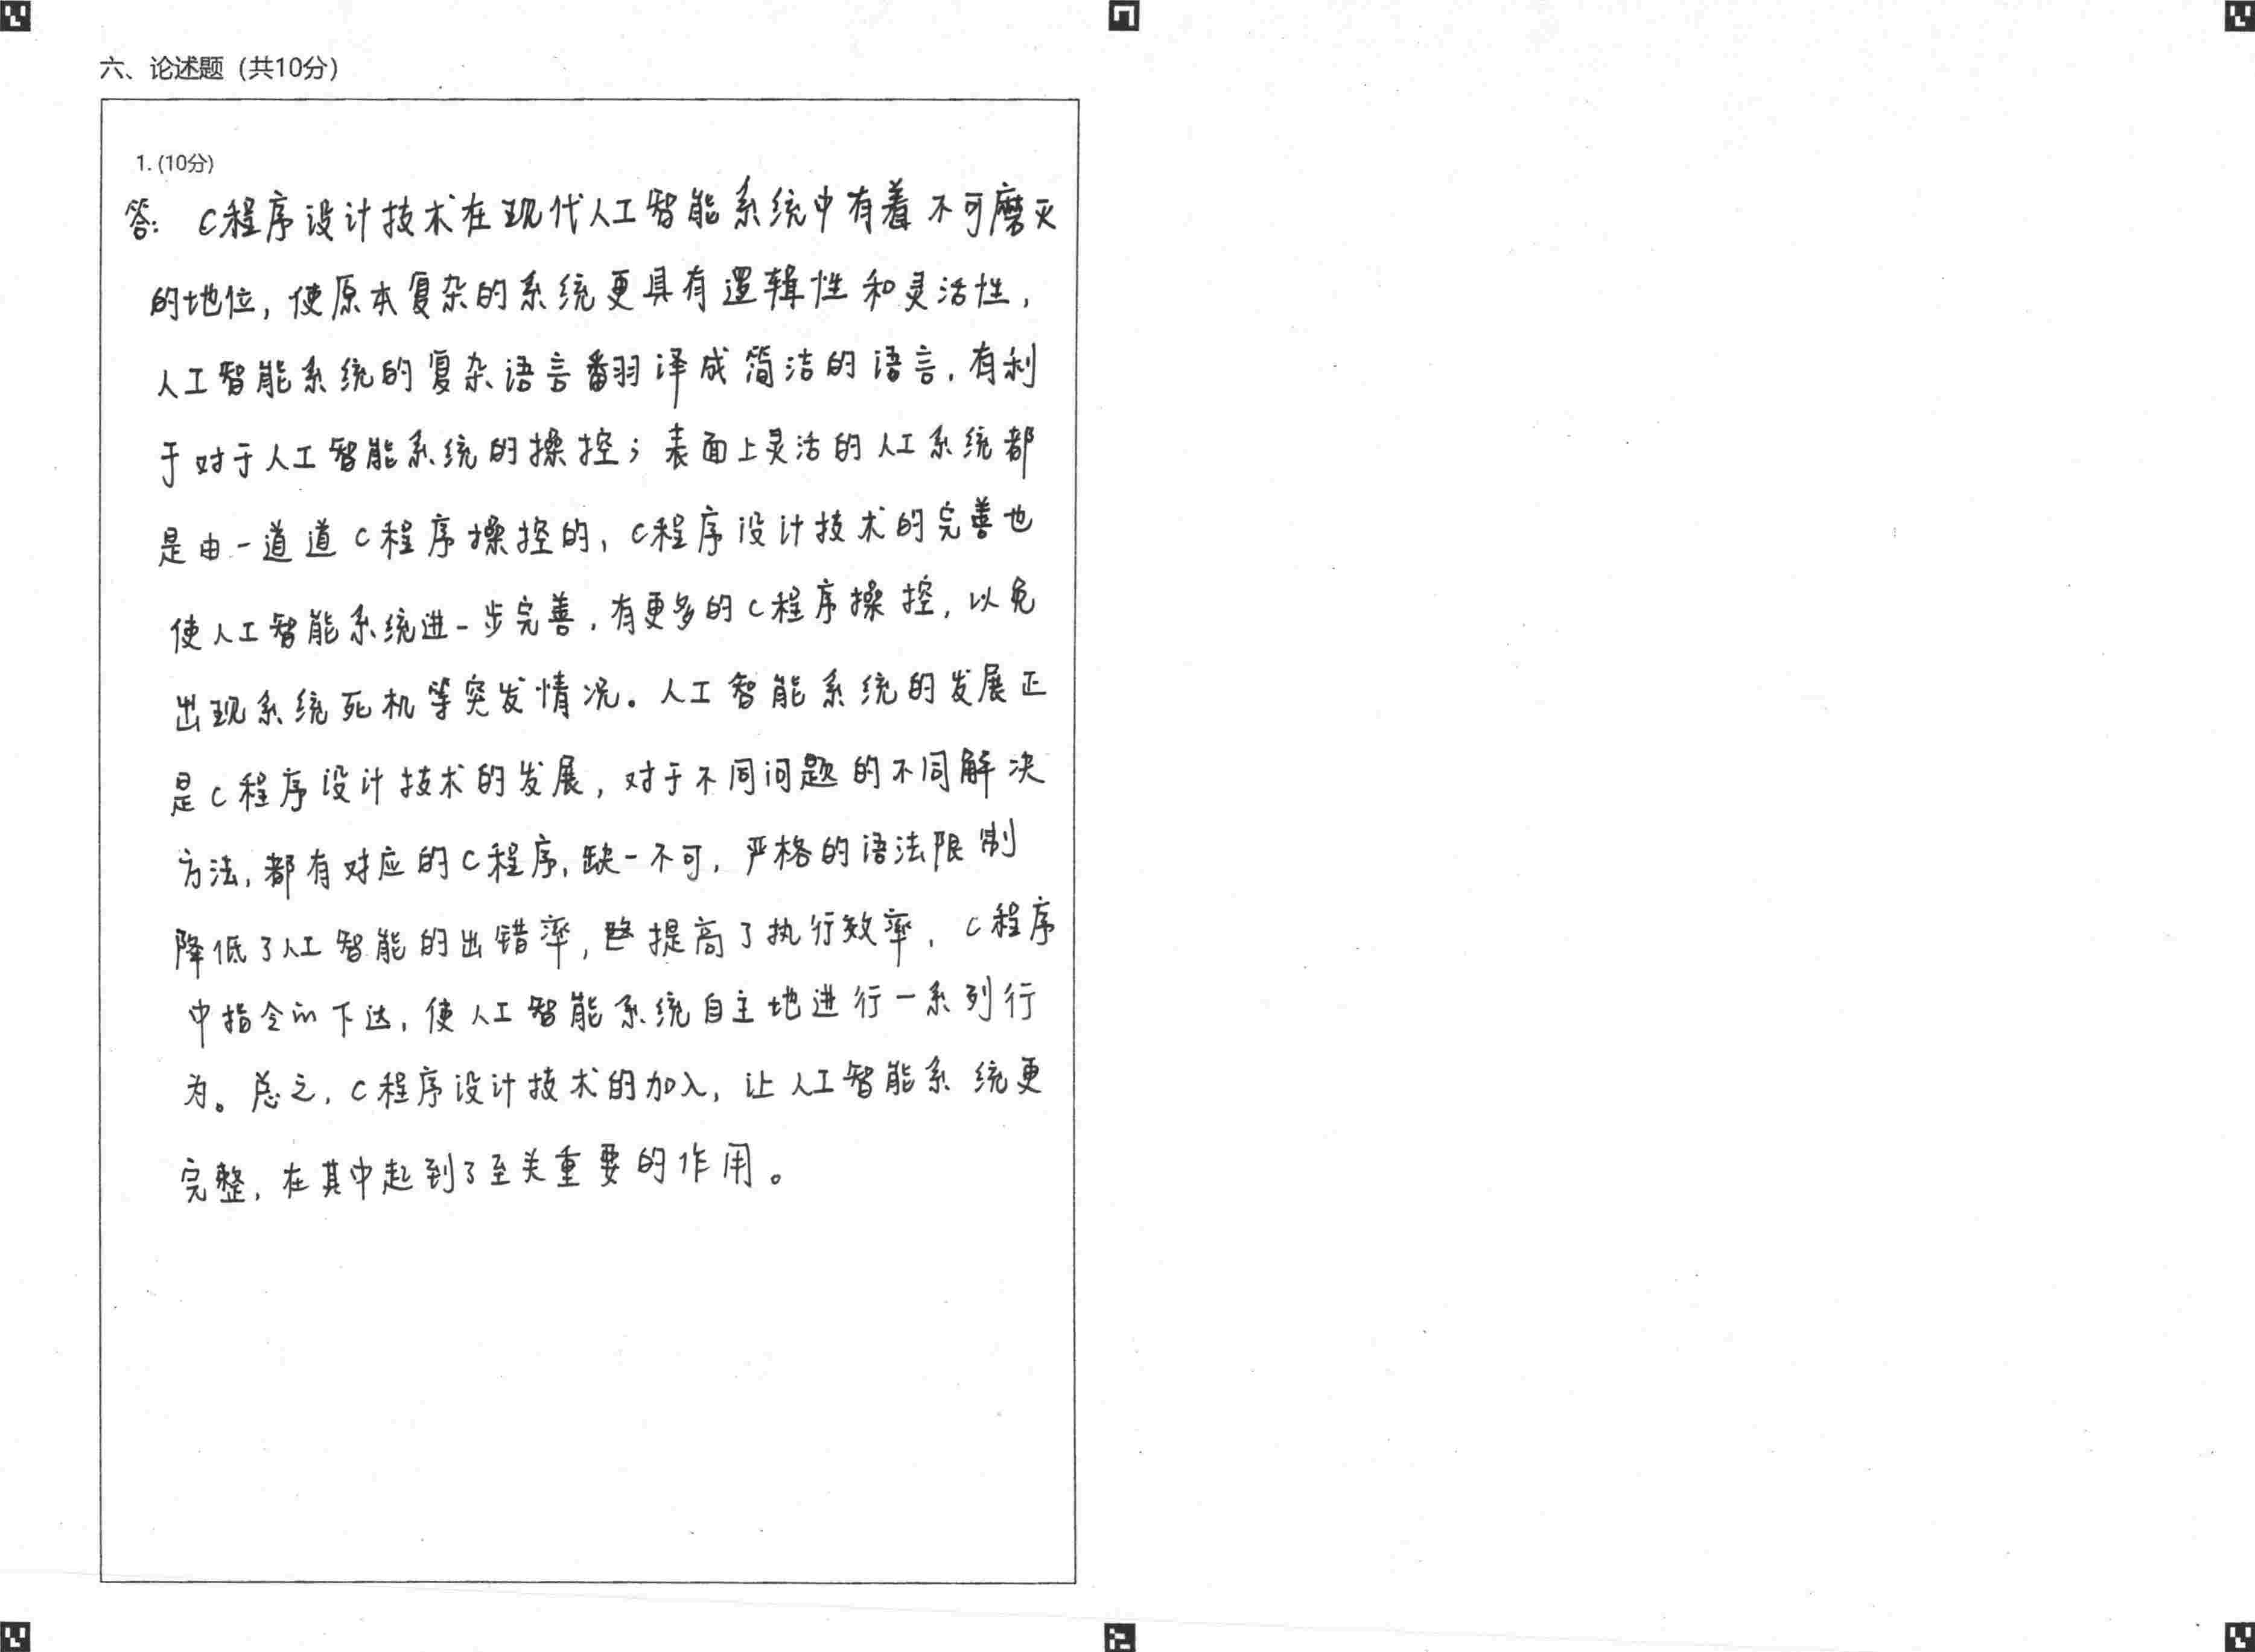 六、论述题（共10分）
1. (10分)
答： C程序设计技术在现代人工智能系统中有着不可磨灭
的地位，使原本复杂的系统更具有逻辑性和灵活性，
人工智能系统的复杂语言翻译成简洁的语言，有利
于对于人工智能系统的操控；表面上灵活的人工系统都
是由一道道C程序操控的，C程序设计技术的完善也
使人工智能系统进一步完善，有更多的C程序操控，以免
出现系统死机等突发情况。人工智能系统的发展正
是C程序设计技术的发展，对于不同问题的不同解决
方法，都有对应的C程序，缺一不可，严格的语法限制
降低了人工智能的出错率，提高了执行效率，C程序
中指令的下达，使人工智能系统自主地进行一系列行
为。总之，C程序设计技术的加入，让人工智能系统更
完整，在其中起到了至关重要的作用。